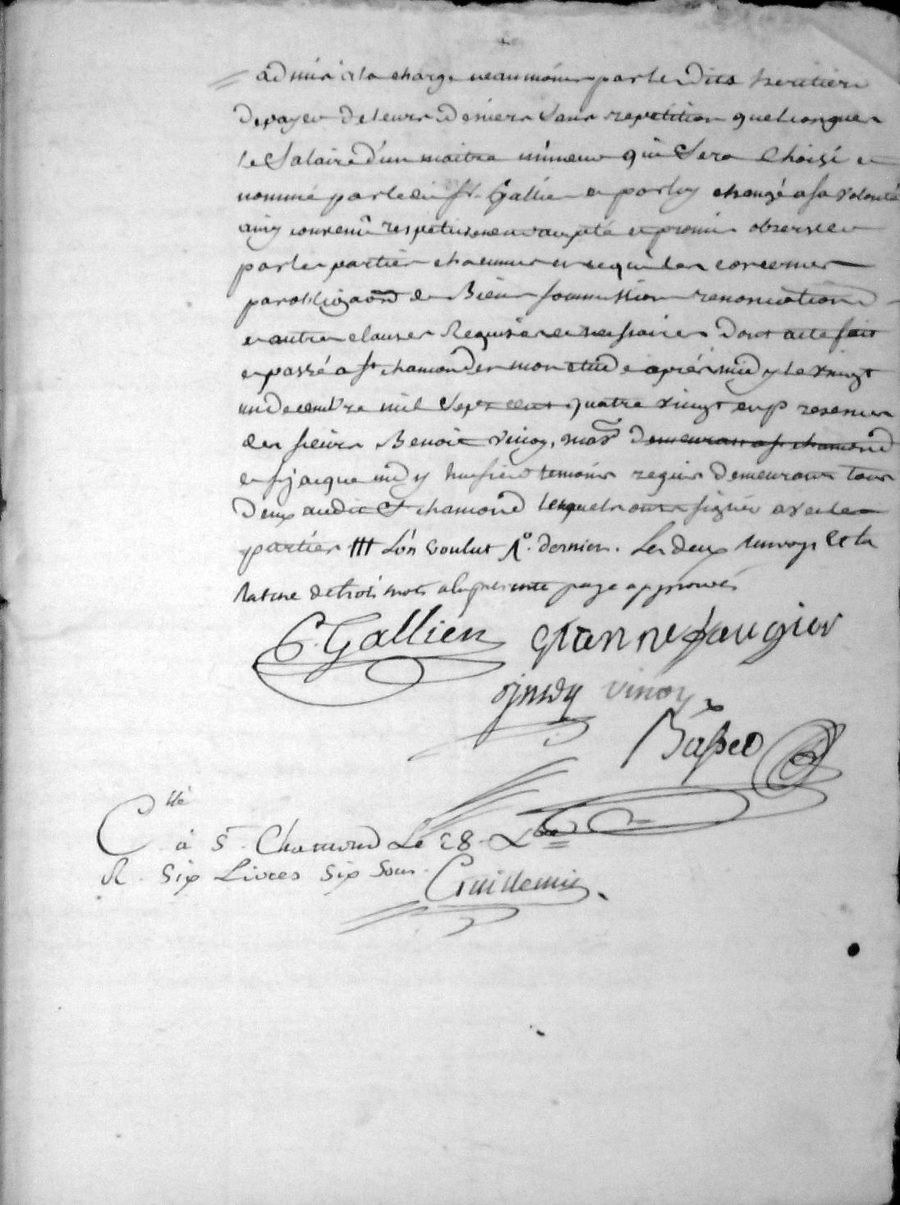 admis à la charge neanmoins par les dits heritiers
de payer de leurs deniers sans repetition quelconques
le Salaire d'un maitre mineur qui Sera Choisi et
nommé par ledit Sr. Gallien et par luy changé a sa volonté
ainsy convenû respectivement accepté et promis observer
par les parties chacunes en ce qui les concernes
par obligaōn de Biens soumission renonciations
et autres clauses Requises et necessaires Dont acte fait
et passé a st chamond en mon etude après midy le vingt
un decembre mil Sept cent quatre vingt en presences
des sieurs Benoit vinoy, demeurant a st chamond
et sr jacque midy huissier temoins requis demeurants tous
Deux audit St chamond lesquels ont signés avec les
parties ttt L'on voulut dernier. Les deux renvoys et la
rature de trois mots a la presente page approuvés
C. Gallien etanne faugier
ojmidy vinoy
C.llé
à St. Chamond Le 28. Xbre
R. Six Livres Six Sous.
Guillemin